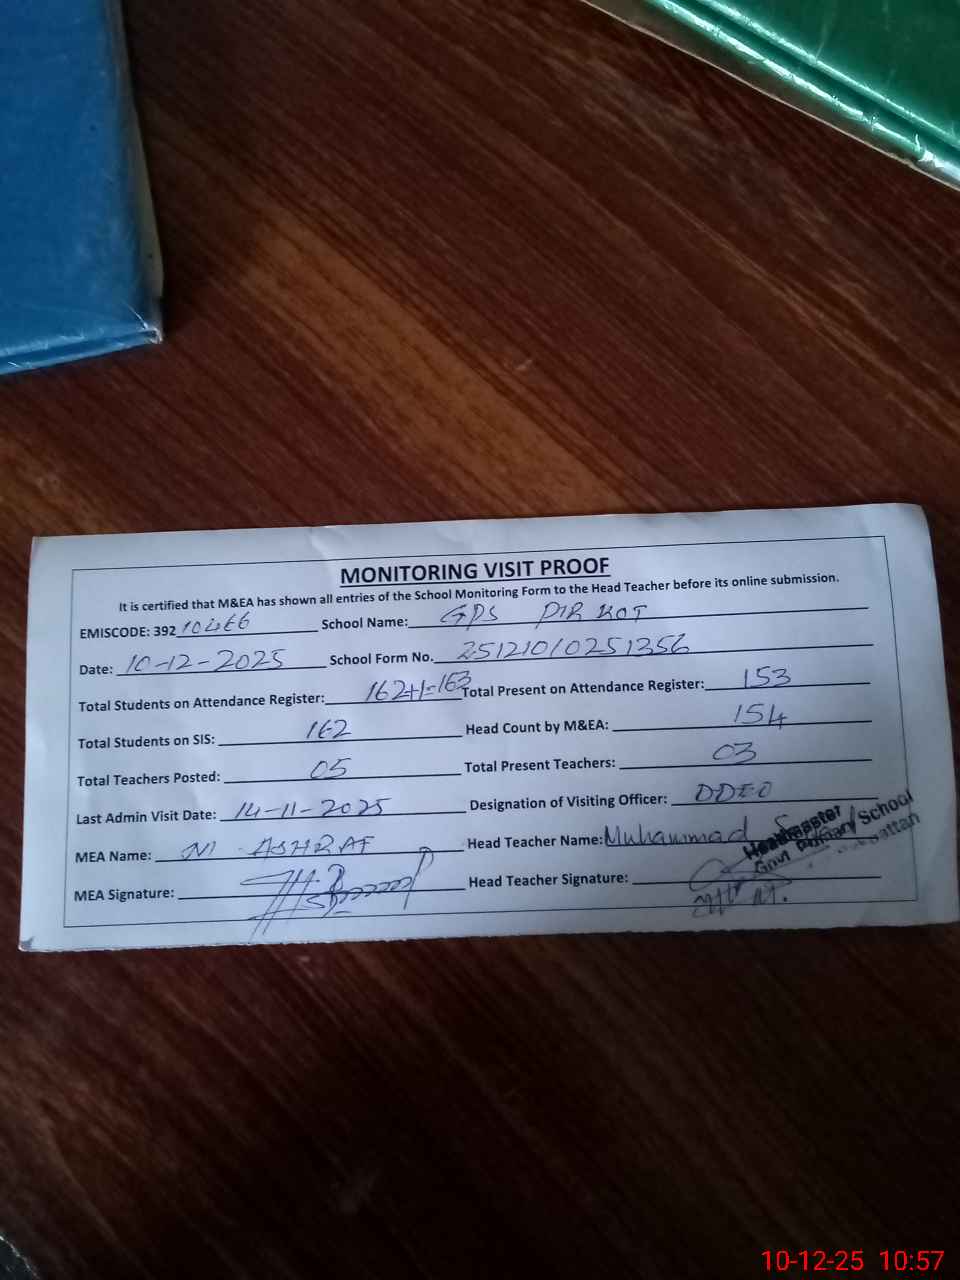 MONITORING VISIT PROOF
It is certified that M&EA has shown all entries of the School Monitoring Form to the Head Teacher before its online submission.
EMISCODE: 392 School Name: GPS PIR KOT
Date: 10-12-2025 School Form No. 25121010251356
Total Students on Attendance Register: 162+1=163 Total Present on Attendance Register: 153
Total Students on SIS: 162 Head Count by M&EA: 154
Total Teachers Posted: 05 Total Present Teachers: 03
Last Admin Visit Date: 14-11-2025 Designation of Visiting Officer: DDEO
MEA Name: M ASHRAF Head Teacher Name: Muhammad
MEA Signature: Head Teacher Signature:
Headmaster
Govt Primary School
10-12-25 10:57